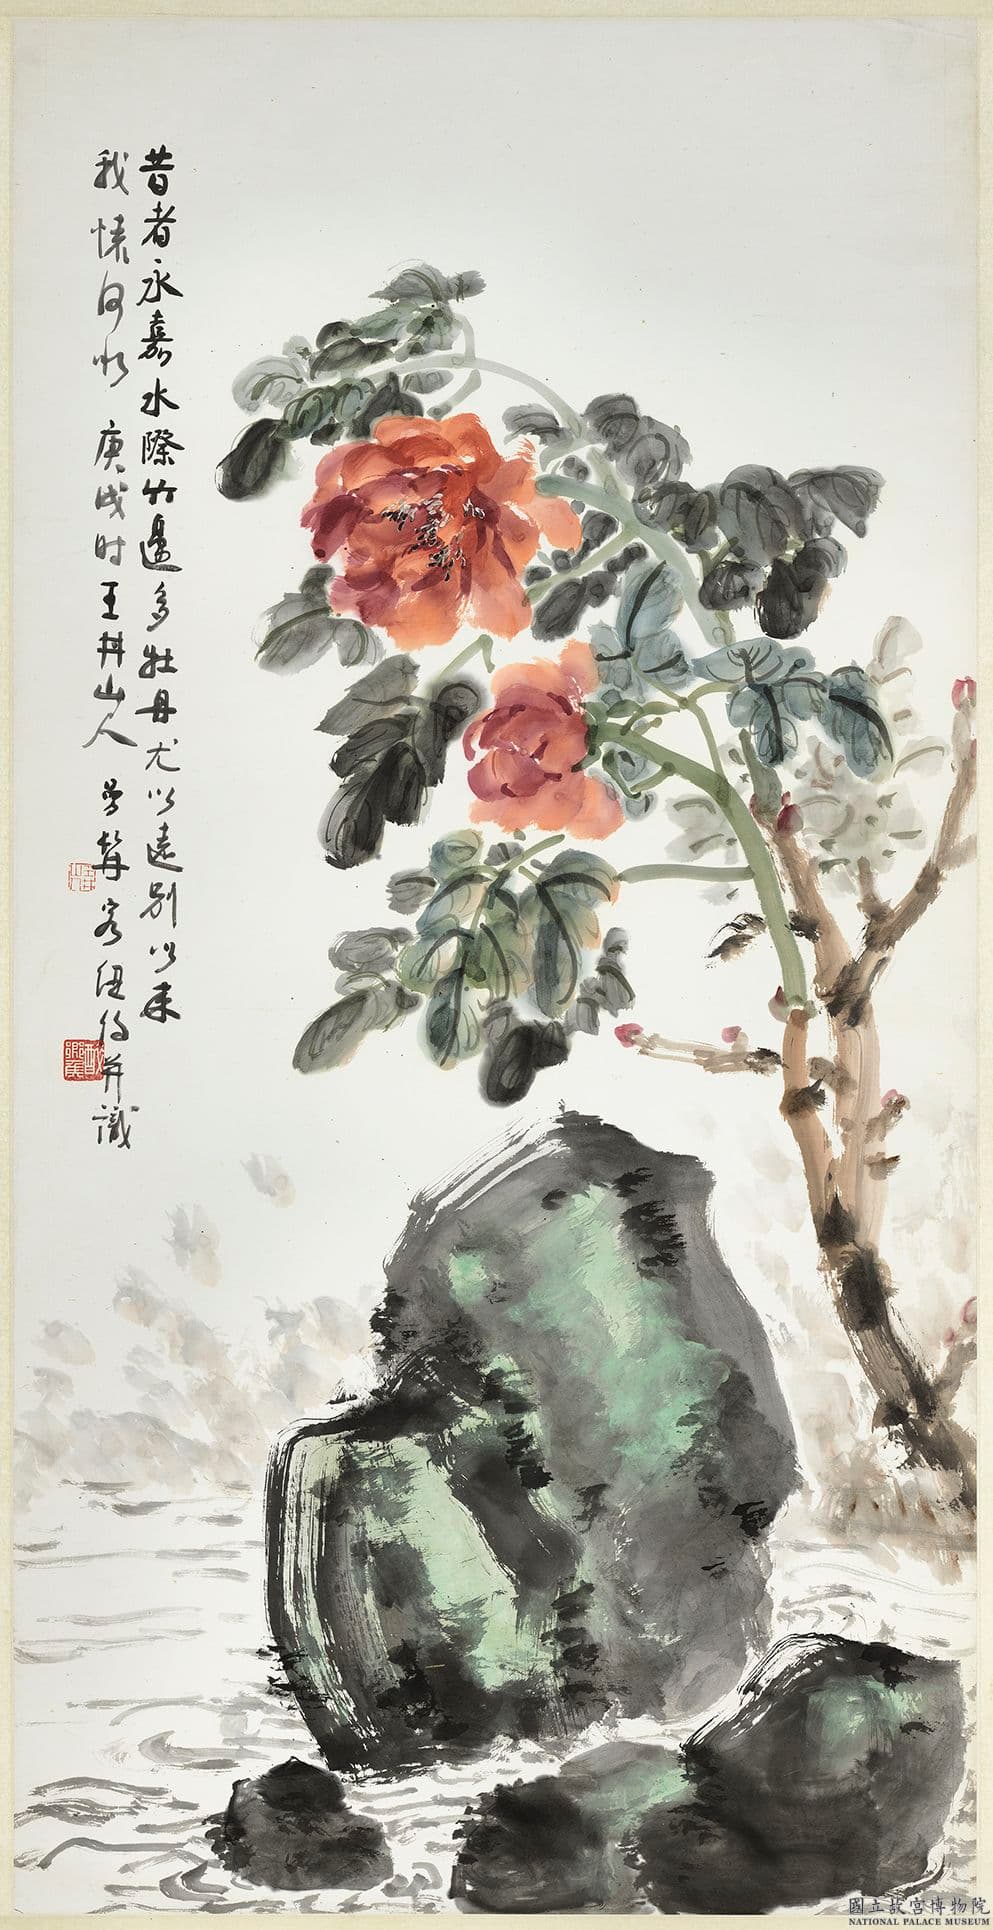 昔者永嘉水際竹邊多牡丹尤以遠別以來
我懷何如 庚戌時王井山人曾髯客紐約并識
國立故宮博物院
NATIONAL PALACE MUSEUM